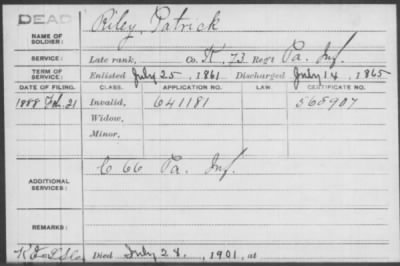 DEAD
NAME OF SOLDIER: Riley, Patrick
SERVICE: Late rank, Co. K, 73 Reg't Pa. Inf.
TERM OF SERVICE: Enlisted July 25, 1861. Discharged July 14, 1865
DATE OF FILING. CLASS. APPLICATION NO. LAW. CERTIFICATE NO.
1888 Feb. 21 Invalid, 641181 568907
Widow,
Minor,
ADDITIONAL SERVICES: C 66 Pa. Inf.
REMARKS:
Died July 28, 1901, at